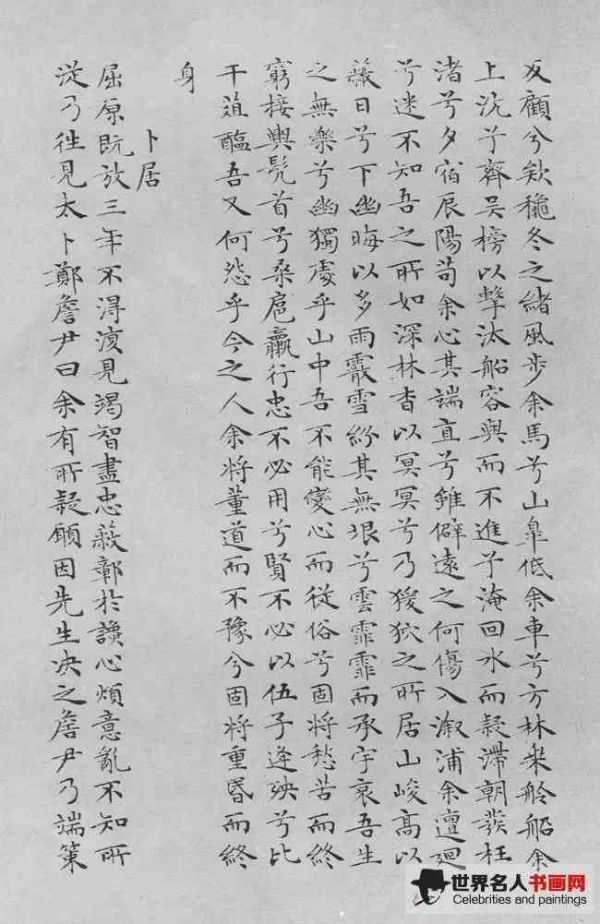 反顧兮欸穐冬之緒風步余馬兮山皐低余車兮方林椉舲船余
上沅兮齊吳榜以擊汰船容與而不進兮淹回水而疑滯朝發枉
渚兮夕宿辰陽苟余心其端直兮雖僻遠之何傷入溆浦余邅迴
兮迷不知吾之所如深林杳以冥冥兮乃猨狖之所居山峻高以
蔽日兮下幽晦以多雨霰雪紛其無垠兮雲霏霏而承宇哀吾生
之無樂兮幽獨處乎山中吾不能變心而從俗兮固將愁苦而終
窮接輿髡首兮桑扈臝行忠不必用兮賢不必以伍子逢殃兮比
干菹醢吾又何怨乎今之人余將董道而不豫兮固將重昏而終
身
卜居
屈原既放三年不得復見竭智盡忠蔽鄣於讒心煩意亂不知所
從乃往見太卜鄭詹尹曰余有所疑願因先生決之詹尹乃端策
世界名人书画网
Celebrities and paintings